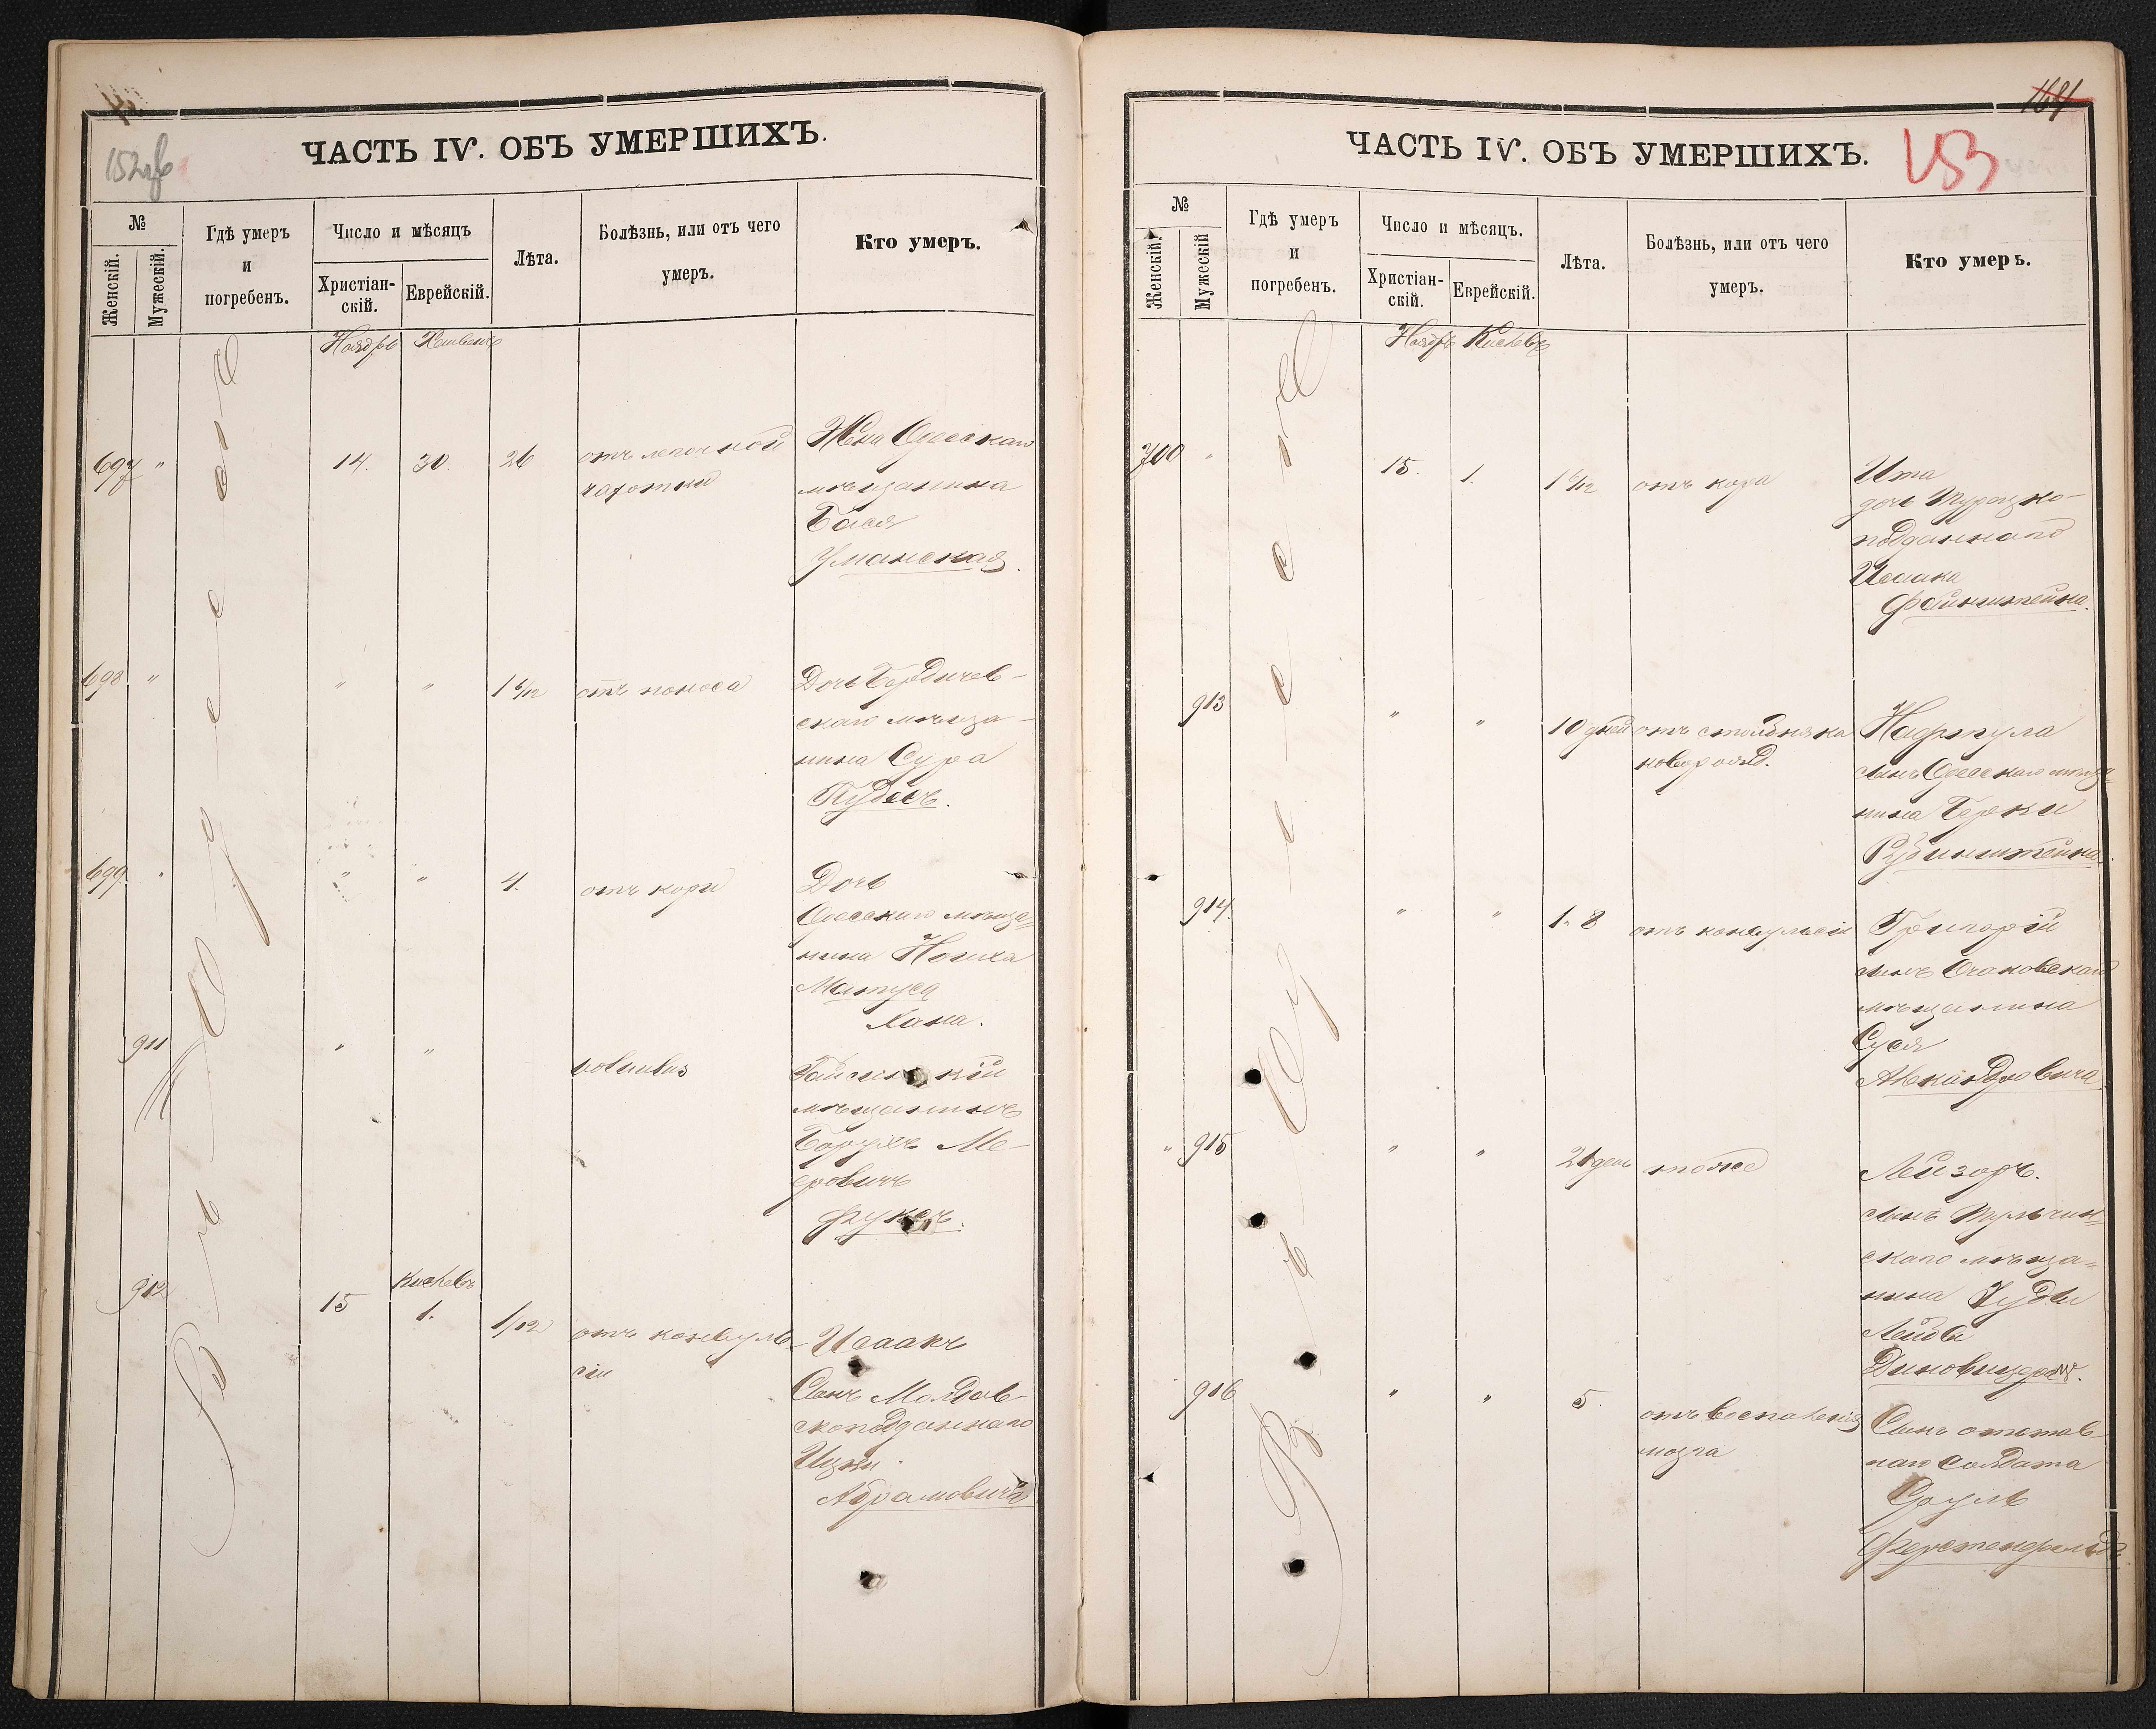 152об
ЧАСТЬ IV. ОБЪ УМЕРШИХЪ.
№
Женскій.
Мужескій.
Гдѣ умеръ
и
погребенъ.
Число и мѣсяцъ
Христіан-
скій.
Еврейскій.
Лѣта.
Болѣзнь, или отъ чего
умеръ.
Кто умеръ.
Въ Одессѣ
Ноябрь Хешвенъ
697 " 14. 30. 26 отъ легочной
чахотки
Жена Одесскаго
мѣщанина
Бася
Уманская.
698 " " " 1 6/12 отъ поноса
Дочь Бердичев-
скаго мѣща-
нина Сура
699 " " " 4. отъ кори
Дочь
Одесскаго мѣща-
нина
Матуса
Хана.
911 " "
Гайсинскій
мѣщанинъ
Борухъ Ме-
еровичъ
Фуксъ.
912 15 Кислевъ
1. 1/12 отъ конвуль-
сіи
Исаакъ
Сынъ Молдав-
скоподданнаго
Ицки
Абрамовича
164
153
ЧАСТЬ IV. ОБЪ УМЕРШИХЪ.
№
Женскій.
Мужескій
Гдѣ умеръ
и
погребенъ.
Число и мѣсяцъ.
Христіан-
скій.
Еврейскій.
Лѣта.
Болѣзнь, или отъ чего
умеръ.
Кто умеръ.
Въ Одессѣ
Ноябрь Кислевъ
700 " 15. 1. отъ кора
Ита
дочь Турецко-
подданнаго
Исаака
Файнштейна.
913 " " 10 дней отъ столбняка
новорожд.
Нафтула
сынъ Одесскаго мѣща-
нина Берки
Рубинштейна.
914. " " 1. 8 отъ конвульсіи
Григорій
сынъ Очаковскаго
мѣщанина
Суся
" 915 " " 21 день тоже
Лейзоръ.
сынъ Тульчин-
скаго мѣща-
нина Іуды
Лейбы
916 " " 5. отъ воспаленія
мозга
Сынъ отстав-
наго солдата
Сруль